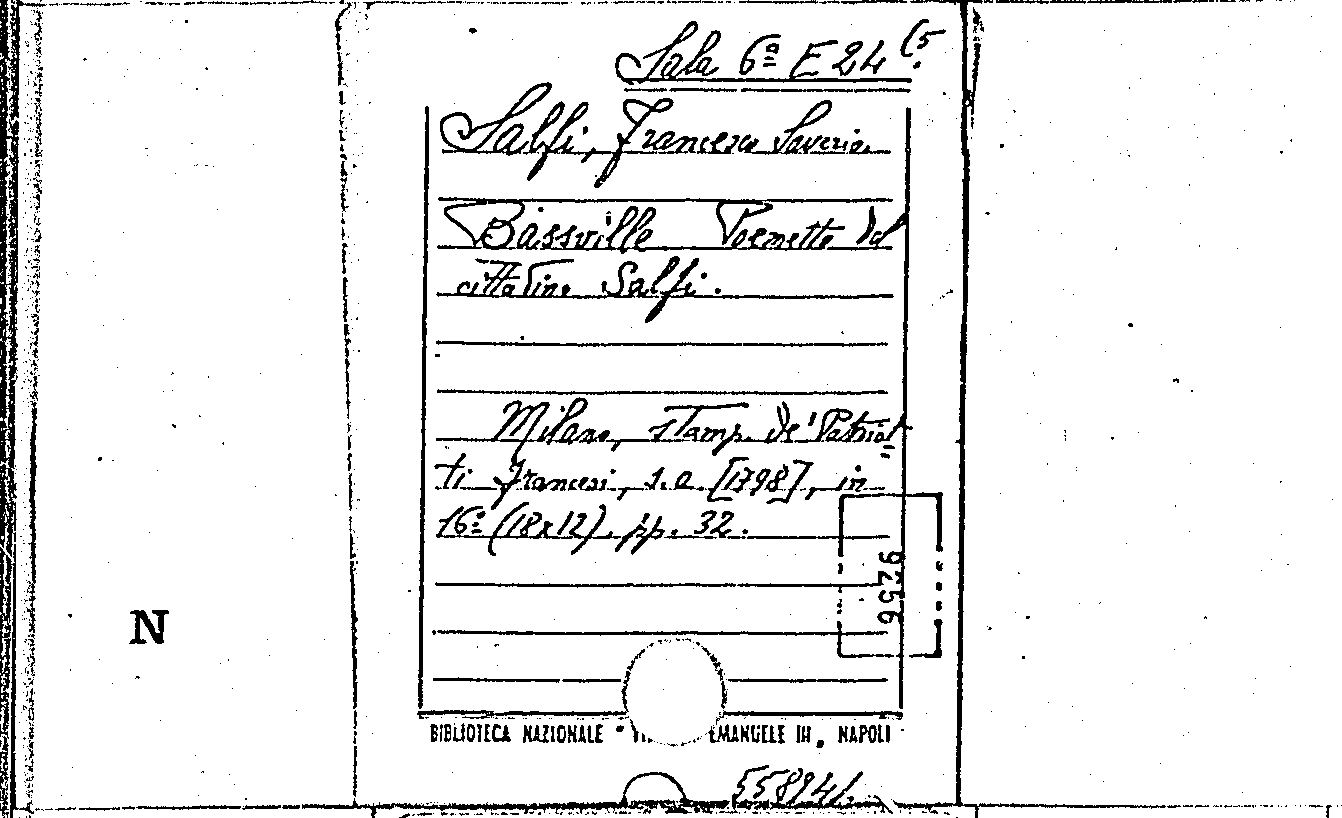 Sala 6ª E 24 (5.
Salfi, Francesco Saverio.
Bassville Poemetto del
cittadino Salfi.
Milano, stamp. de' Patriot
ti Francesi, s.a. [1798], in
16º (18x12). pp. 32.
9256
N
BIBLIOTECA NAZIONALE EMANUELE III, NAPOLI